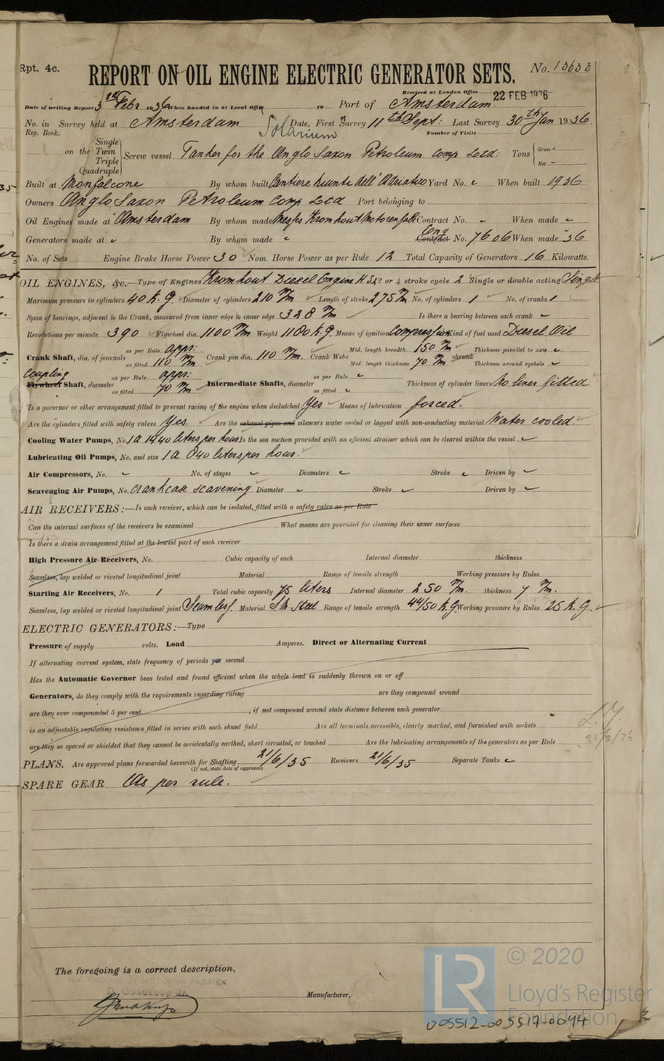 Rpt. 4c.
REPORT ON OIL ENGINE ELECTRIC GENERATOR SETS.
No. 10600
Received at London Office 22 FEB 1936
Date of writing Report 3rd Feb 1936 When handed in at Local Office 19 Port of Amsterdam
No. in Survey held at Amsterdam Date, First Survey 11th Sept: Last Survey 30th Jan 1936
Reg. Book. Solarium Number of Visits
on the Single Twin Triple Quadruple Screw vessel Tanker for the Anglo Saxon Petroleum Comp Ltd: Tons Gross Net
Built at Monfalcone By whom built Cantiere Riunite dell Adriatico Yard No. When built 1936
Owners Anglo Saxon Petroleum Comp Ltd Port belonging to
Oil Engines made at Amsterdam By whom made Kromhout Motorenfab Contract No. When made
Generators made at By whom made Contract No. 7606 When made 36
No. of Sets Engine Brake Horse Power 30 Nom. Horse Power as per Rule 12 Total Capacity of Generators 16 Kilowatts.
OIL ENGINES, &c.—Type of Engines Kromhout Diesel Engine 2 or 4 stroke cycle 2 Single or double acting Single
Maximum pressure in cylinders 40 k.g. Diameter of cylinders 210 m/m Length of stroke 275 m/m No. of cylinders 1 No. of cranks 1
Span of bearings, adjacent to the Crank, measured from inner edge to inner edge 328 m/m Is there a bearing between each crank
Revolutions per minute 390 Flywheel dia. 1100 m/m Weight 1180 k.g. Means of ignition Compression Kind of fuel used Diesel Oil
Crank Shaft, dia. of journals as per Rule appr: as fitted 110 m/m Crank pin dia. 110 m/m Crank Webs Mid. length breadth 150 m/m Mid. length thickness 70 m/m shrunk Thickness parallel to axis Thickness around eyehole
Coupling Flywheel Shaft, diameter as per Rule appr: as fitted 70 m/m Intermediate Shafts, diameter as per Rule as fitted Thickness of cylinder liners No liner fitted
Is a governor or other arrangement fitted to prevent racing of the engine when declutched Yes Means of lubrication forced.
Are the cylinders fitted with safety valves Yes. Are the exhaust pipes and silencers water cooled or lagged with non-conducting material Water cooled
Cooling Water Pumps, No. 1 a 1440 liters per hour Is the sea suction provided with an efficient strainer which can be cleared within the vessel
Lubricating Oil Pumps, No. and size 1 a 040 liters per hour.
Air Compressors, No. No. of stages Diameters Stroke Driven by
Scavenging Air Pumps, No. crankcase scavening Diameter Stroke Driven by
AIR RECEIVERS:—Is each receiver, which can be isolated, fitted with a safety valve as per Rule
Can the internal surfaces of the receivers be examined What means are provided for cleaning their inner surfaces
Is there a drain arrangement fitted at the lowest part of each receiver
High Pressure Air Receivers, No. Cubic capacity of each Internal diameter thickness
Seamless, lap welded or riveted longitudinal joint Material Range of tensile strength Working pressure by Rules
Starting Air Receivers, No. 1 Total cubic capacity 75 liters Internal diameter 250 m/m thickness 7 m/m.
Seamless, lap welded or riveted longitudinal joint Seamless Material S.M. Steel Range of tensile strength 44/50 k.g. Working pressure by Rules 25 k.g.
ELECTRIC GENERATORS:—Type
Pressure of supply volts. Load Amperes. Direct or Alternating Current
If alternating current system, state frequency of periods per second
Has the Automatic Governor been tested and found efficient when the whole load is suddenly thrown on or off
Generators, do they comply with the requirements regarding rating are they compound wound
are they over compounded 5 per cent. , if not compound wound state distance between each generator
is an adjustable regulating resistance fitted in series with each shunt field Are all terminals accessible, clearly marked, and furnished with sockets
are they so spaced or shielded that they cannot be accidentally earthed, short circuited, or touched Are the lubricating arrangements of the generators as per Rule
PLANS. Are approved plans forwarded herewith for Shafting 21/6/35 Receivers 21/6/35 Separate Tanks
(If not, state date of approval)
SPARE GEAR As per rule.
The foregoing is a correct description,
Manufacturer.
© 2020
LR
Lloyd's Register
Foundation
005512-005517-0044